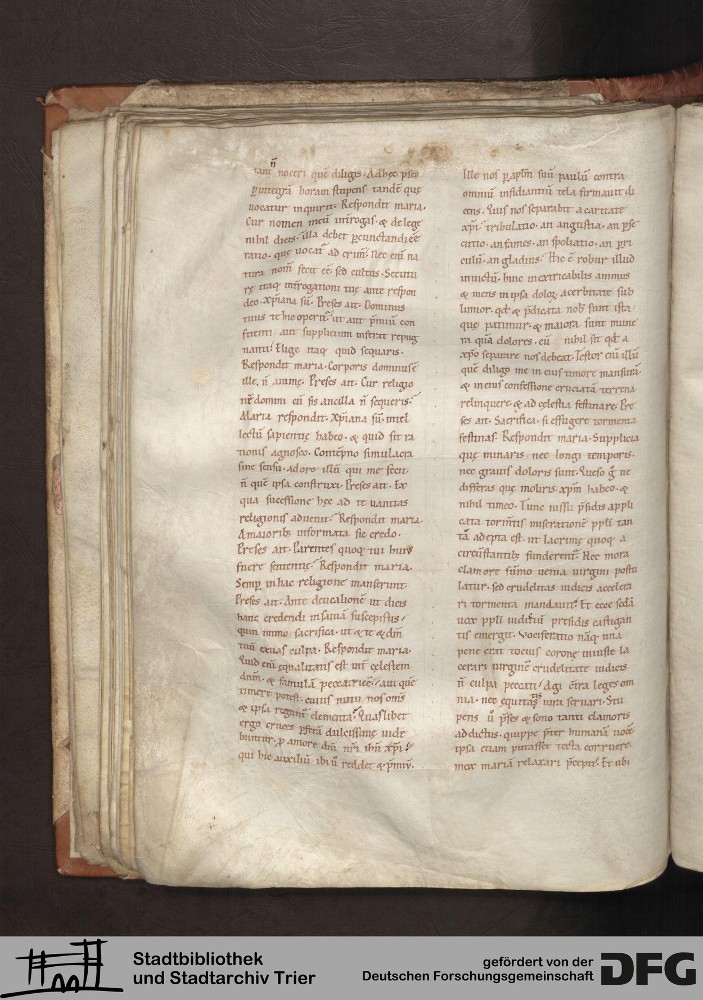 tant noceri quē diligis. Adhęc pſes
ꝑ integrā horam stupens tandē que
uocatur inquirit. Respondit maria.
Cur nomen meū int̄rogas. & de lege
nihil dicis. illa debet ꝑcunctandi eē
ratio. que uocat̄ ad crim̄. Nec enī na
tura nom̄ fecit eē. sed cultus. Secutu
rę itaq; int̄rogationi tuę ante respon
deo. xp̄iana sū. Preses ait. Dominus
tuus te hic operit̄. ut aut p̄miū con
fitenti. aut supplicium inferat repug
nanti. Elige itaq; quid sequaris.
Respondit maria. Corporis dominus ē
ille. n̄ animę. Preses ait. Cur religio
nē domini cū sis ancilla n̄ sequeris.
Maria respondit. Xp̄iana sū. intel
lectū sapientię habeo. & quid sit ra
tionis agnosco. Contēpno simulacra
sine sensu. adoro illū qui me fecit.
n̄ que ipsa construxi. Preses ait. Ex
qua sucessione hęc ad te uanitas
religionis aduenit. Respondit maria.
A maiorib; informata sic credo.
Preses ait. Parentes quoq; tui huiꝰ
fuere sententię. Respondit maria.
Semꝑ in hac religione manserunt.
Preses ait. Ante deucalionē ut dicis
hanc credendi insaniā suscepistis.
quin immo sacrifica. ut & te & dn̄m
tuū exuas culpa. Respondit maria.
Quid enī equalitatis est int̄ celestem
dn̄m. & famulā peccatricē. aut quē
timere potest. cuius nutu nos om̄s
& ipsa regunt̄ elementa. Quaslibet
ergo cruces p̄ferā dulcissimę uide
buntur. ꝓ amore dn̄i nr̄i ihū xp̄i.
qui hic auxiliū ibi ū reddet & p̄miū.
Ille nos ꝑ aplm̄ suū paulū contra
omniū insidiantiū tela firmauit di
cens. Quis nos separabit a caritate
xp̄i. tribulatio. an angustia. an ꝑse
cutio. an fames. an spoliatio. an ꝑri
culū. an gladius. Hic ē robur illud
inuictū. hinc inextricabilis animus
& mens in ipsa doloꝝ acerbitate sub
limior. qd̄ & p̄dicata nob̄ sunt ista
que patimur. & maiora sunt mune
ra quā dolores. cū nihil sit qd̄ a
xp̄o separare nos debeat. Testor enī illū
quē diligo me in eius timore mansurā.
& in eius confessione cruciatā terrena
relinquere. & ad celestia festinare. Pre
ses ait. Sacrifica. si effugere tormenta
festinas. Respondit maria. Supplicia
que minaris. nec longi temporis.
nec grauis doloris sunt. Queso g̊ ne
differas que moliris. xp̄m habeo. &
nihil timeo. Tunc iussu p̄sidis appli
cata torm̄tis miserationē ppl̄i tan
tā adepta est. ut lacrimę quoq; a
circūstantib; funderent̄. Nec mora
clamore sūmo uenia uirgini postu
latur. sed crudelitas iudicis accelera
ri tormenta mandauit. Et ecce sedā
uox ppl̄i presidis castigan
tis emergit. Vociferatio nāq; una
pene erat totius coronę iniuste la
cerari uirginē crudelitate iudicis.
n̄ culpa peccati. Agi c̄tra leges om
nia. nec equitatis iura seruari. Stu
pens ū p̄ses & sono tanti clamoris
addictus. quippe p̄ter humanā uocē
ipsa etiam putasset tecta corruere.
mox mariā relaxari p̄cepit. Et ubi
Stadtbibliothek
und Stadtarchiv Trier
gefördert von der
Deutschen Forschungsgemeinschaft
DFG